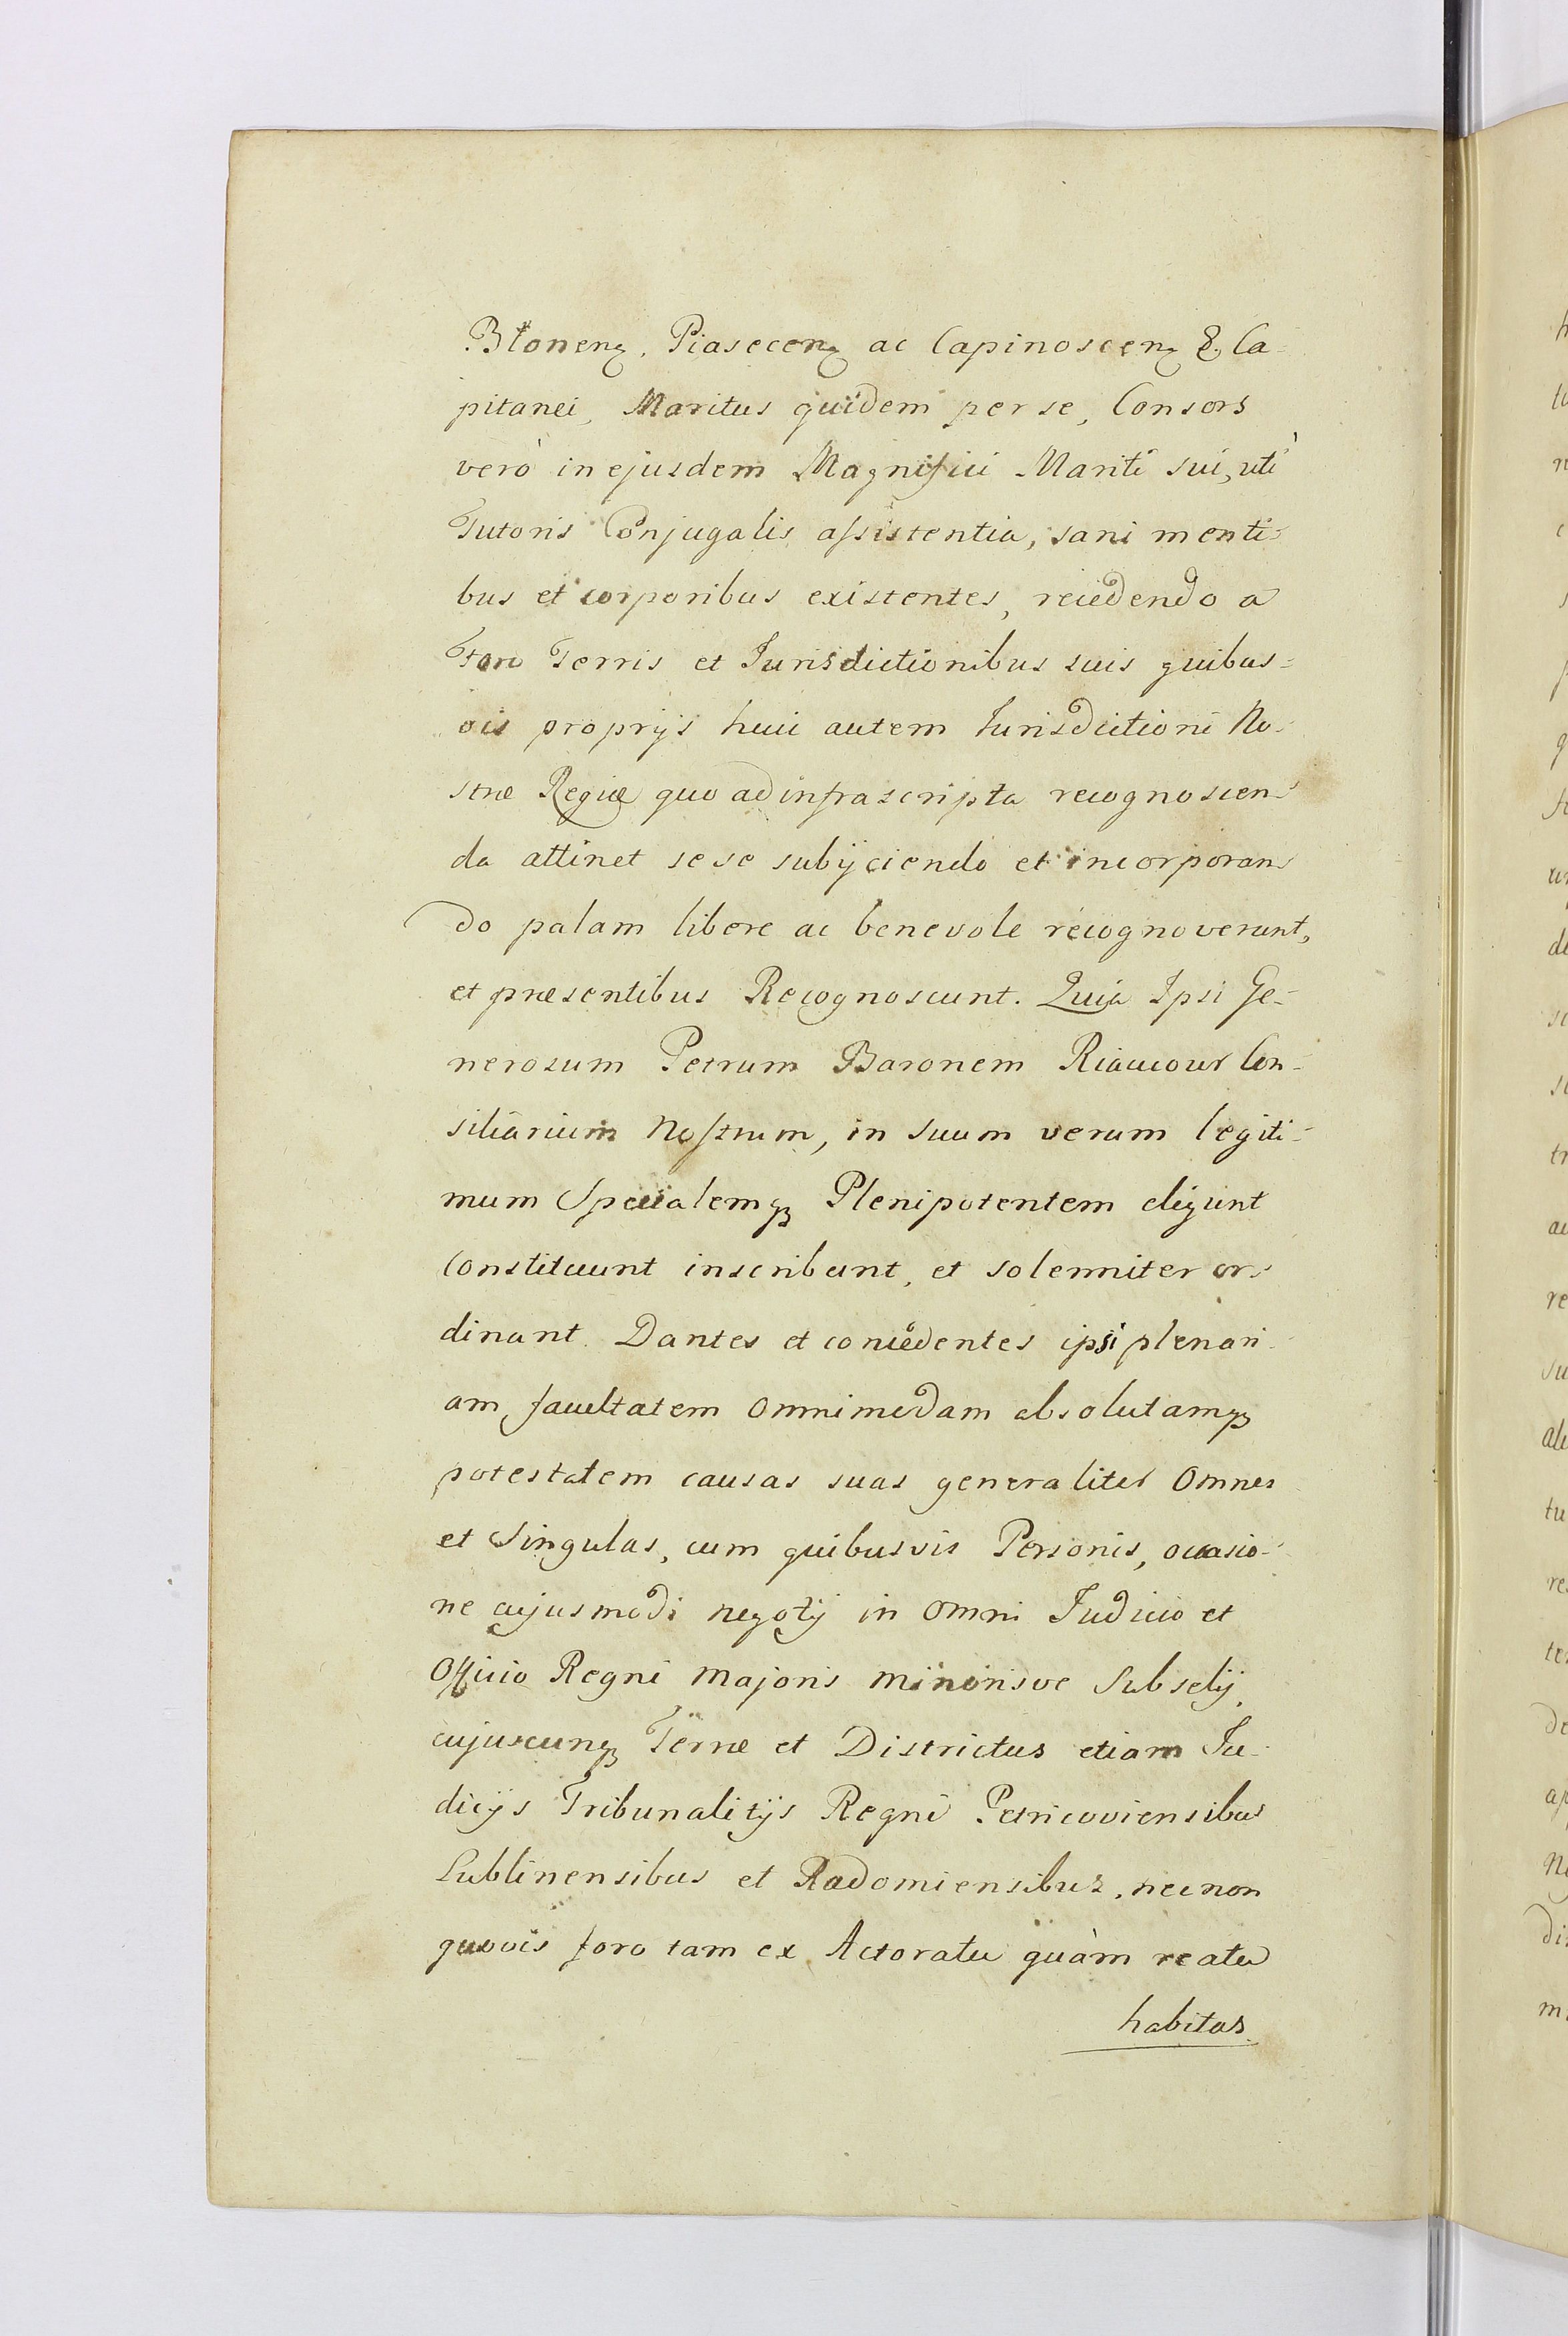 Błonenꝫ. Piasecenꝫ ac Capinoscenꝫ &. Ca-
pitanei, Maritus quidem per se, Consors
verò in ejusdem Magnifici Mariti sui, utì
Tutoris Conjugalis assistentia, sani menti-
bus et corporibus existentes, recedendo a
Foro Terris et Jurisdictionibus suis quibus-
vis proprijs huic autem Jurisdictioni No-
stræ Regiæ quo ad infrascripta recognoscen-
da attinet sese subijciendo et incorporan-
do palam libere ac benevole recognoverunt,
et præsentibus Recognoscunt. Quia Ipsi Ge-
nerosum Petrum Baronem Riaucour Con-
siliarium Nostrum, in suum verum legiti-
mum Specialemqꝫ Plenipotentem eligunt
Constituunt inscribunt, et solenniter or-
dinant. Dantes et concedentes ipsi plenari-
am facultatem omnimodam absolutamqꝫ
potestatem causas suas generaliter Omnes
et Singulas, cum quibusvis Personis, occasio-
ne cujusmodi negotij in omni Judicio et
Officio Regni Majoris Minorisve Subselij,
cujuscunqꝫ Terræ et Districtus etiam Ju-
dicijs Tribunalitijs Regni Petricoviensibus
Lublinensibus et Radomiensibus, necnon
quovis foro tam ex Actoratu quàm reatu
habitas